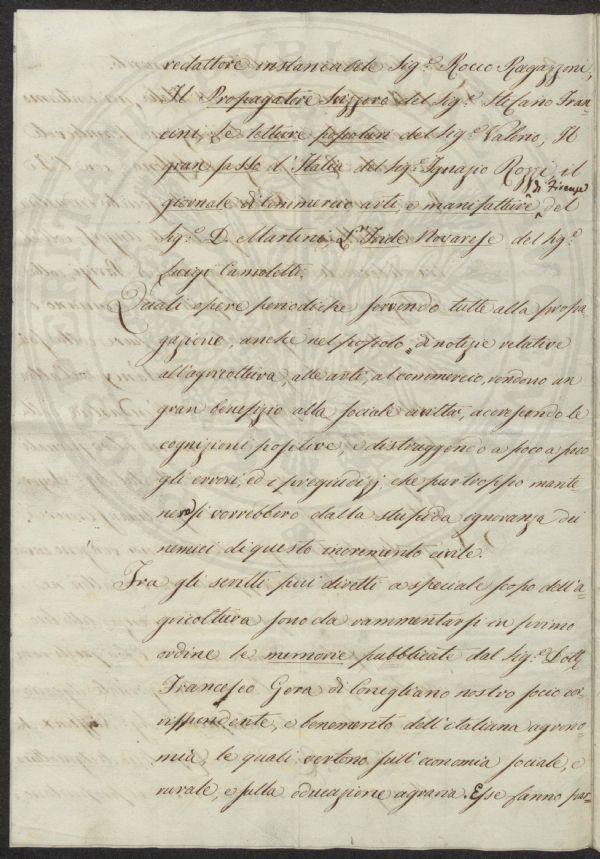 redattore instancabile Sig.r Rocco Ragazzoni,
Il Propagatore svizzero del Sig.r Stefano Fran-
cini le letture popolari del Sig.r Valerio, Il
gran sasso d'Italia del Sig.r Ignazio Rozzi, il
giornale di commercio arti, e manifatture di Firenze del
Sig.r D. Martini, L' Iride Novarese del Sig.r
Luigi Camoletti.
Quali opere periodiche servendo tutte alla propa
gazione, anche nel popolo, di notizie relative
all'agricoltura, alle arti, al commercio, rendono un
gran benefizio alla sociale civiltà, accrescendo le
cognizioni positive, e distruggendo a poco a poco
gli errori, ed i pregiudizj, che pur troppo mante
nersi vorrebbero dalla stupida ignoranza dei
nemici di questo incremento civile.
Fra gli scritti più diretti a speciale scopo dell'a=
gricoltura sono da rammentarsi in primo
ordine le memorie pubblicate dal Sig.r Dott.
Francesco Gera di Conegliano nostro socio cor-
rispondente, e benemerito dell'italiana agrono-
mia, le quali vertono sull'economia sociale, e
rurale, e sulla educazione agraria. Esse fanno par-